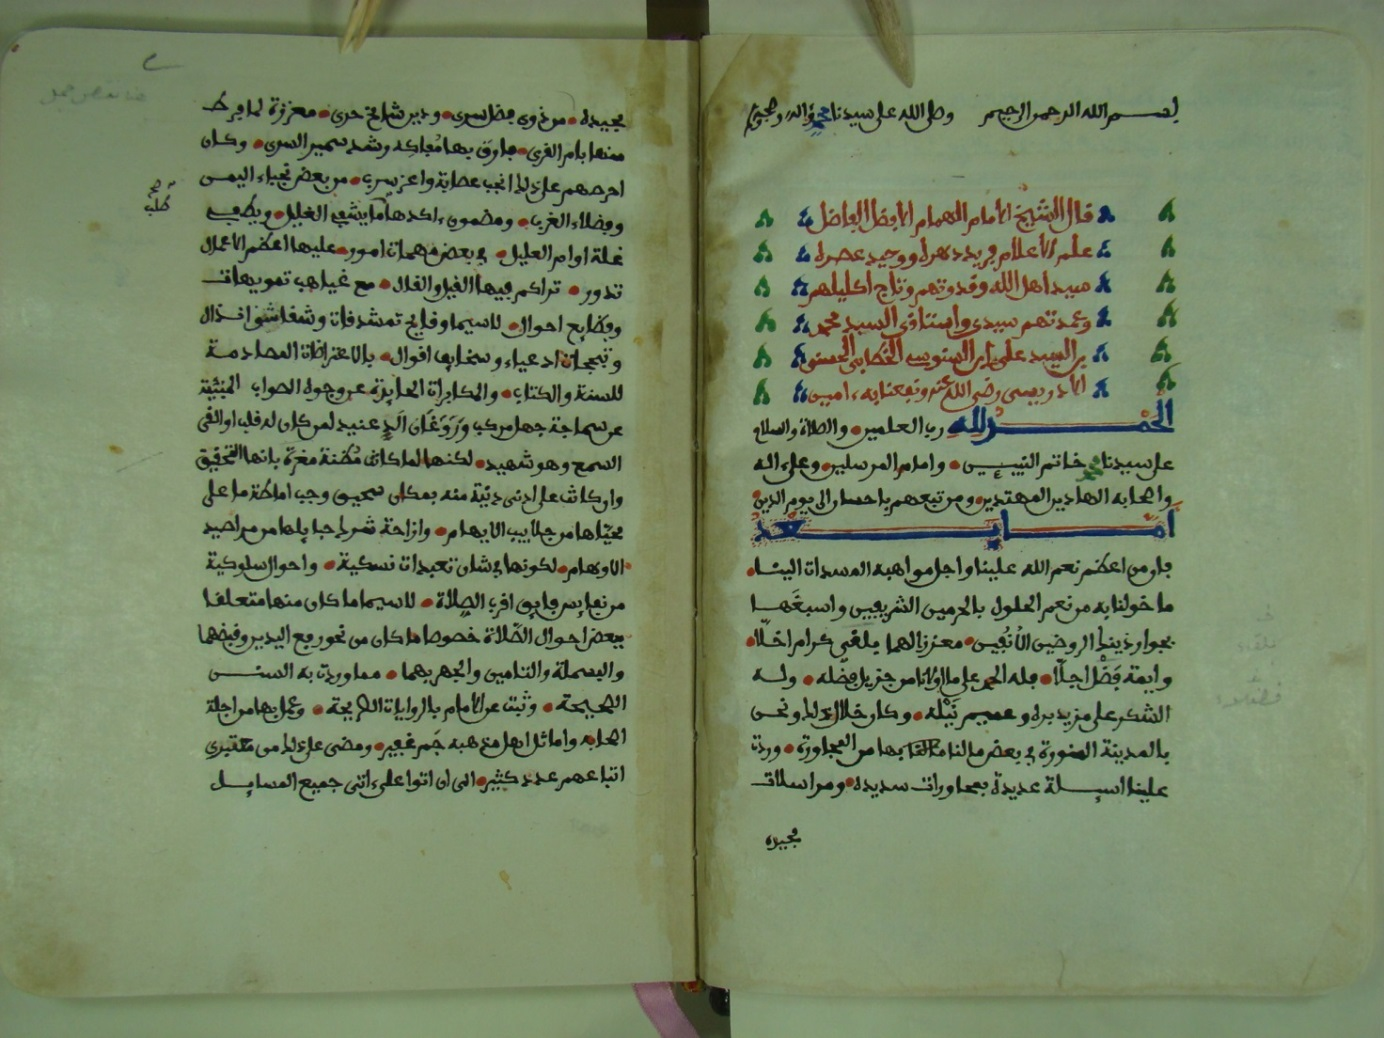 بسم الله الرحمن الرحيم وصلى الله على سيدنا محمد وآله وصحبه
قال الشيخ الامام الهمام الافضل الفاضل
علم الأعلام فريد دهره ووحيد عصره
سيد اهل الله وقدوتهم وتاج اكليلهم
وعمدتهم سيدي واستاذي السيد محمد
بن السيد علي ابن السنوسي الخطابي الحسني
الادريسي رضي الله عنه ونفعنا به ءامين
الحمد لله رب العلمين والصلاة والسلام
على سيدنا محمد خاتم النبيين وامام المرسلين وعلى اله
واصحابه الهادين المهتدين ومن تبعهم باحسان الى يوم الدين
أما بعد
فان من اعظم نعم الله علينا واجل مواهبه المسدات الينا
ما خولنا به من نعم الحلول بالحرمين الشريفين واسبغها
بجوار ذينك الروضين الأنيقين معززا لهما بملقى كرام اخلا
وايمة فضل اجلا فله الحمد على ما اولانا من جزيل فضله وله
الشكر على مزيد بره وعميم نيله وكان خلال ذلك ونحن
بالمدينة المنورة في بعض ما لنا بها من المجاورة وردت
علينا اسيلة عديدة بمحاورات سديده ومراسلات
مجيده
مجيده من ذوي فضل سري ودين شامخ حرى معززة لما فرط
منها بام القرى فاوق بها مفاكه وشهد سمير السرى وكان
احرصهم على ذلك انجب عصابة واعز سرب من بعض نجباء اليمن
وفضلاء الغرب ومضمون ءاكدها ما يشفي الغليل ويطفي
غلة اوام العليل في بعض مهمات امور عليها اعظم الاعمال
تدور تراكم فيها القيل والقال مع غياهب تمويهات
وفظايع احوال لاسيما وقايع تمشدقات وشقاشق انذال
وتبجحات ادعياء وسخايف اقوال بالاعتراضات المصادمة
للسنة والكتاب والمكابرات الحايدة عن وجوه الصواب المنبئة
عن سماجة جهل مركب وروغان الد عنيد لمن كان له قلب او القى
السمع وهو شهيد لكنها لما كانت مظنة مغرة بانها التحقيق
وان كانت على ادنى دنية منه بمكان سحيق وجب اماطة ما على
محياها من جلابيب الايهام وازاحة شرك حبايلها من مراصيد
الاوهام لكونها في شان تعبدات نسكية واحوال سلوكية
من نفايس فايق اقرب الصلاة لاسيما ما كان منها متعلقا
ببعض احوال الصلاة خصوصا ما كان من نحو رفع اليدين وقبضها
والبسملة والتامين والجهر بهما مما وردت به السنن
الصحيحة وثبت عن الامام بالروايات الصريحة وعمل بها من اجلة
اصحابه واماثل اهل مذهبه جم غفير ومضى على ذلك من معتبري
اتباعهم عدد كثير الى ان اتوا على ءاتى جميع المسايل